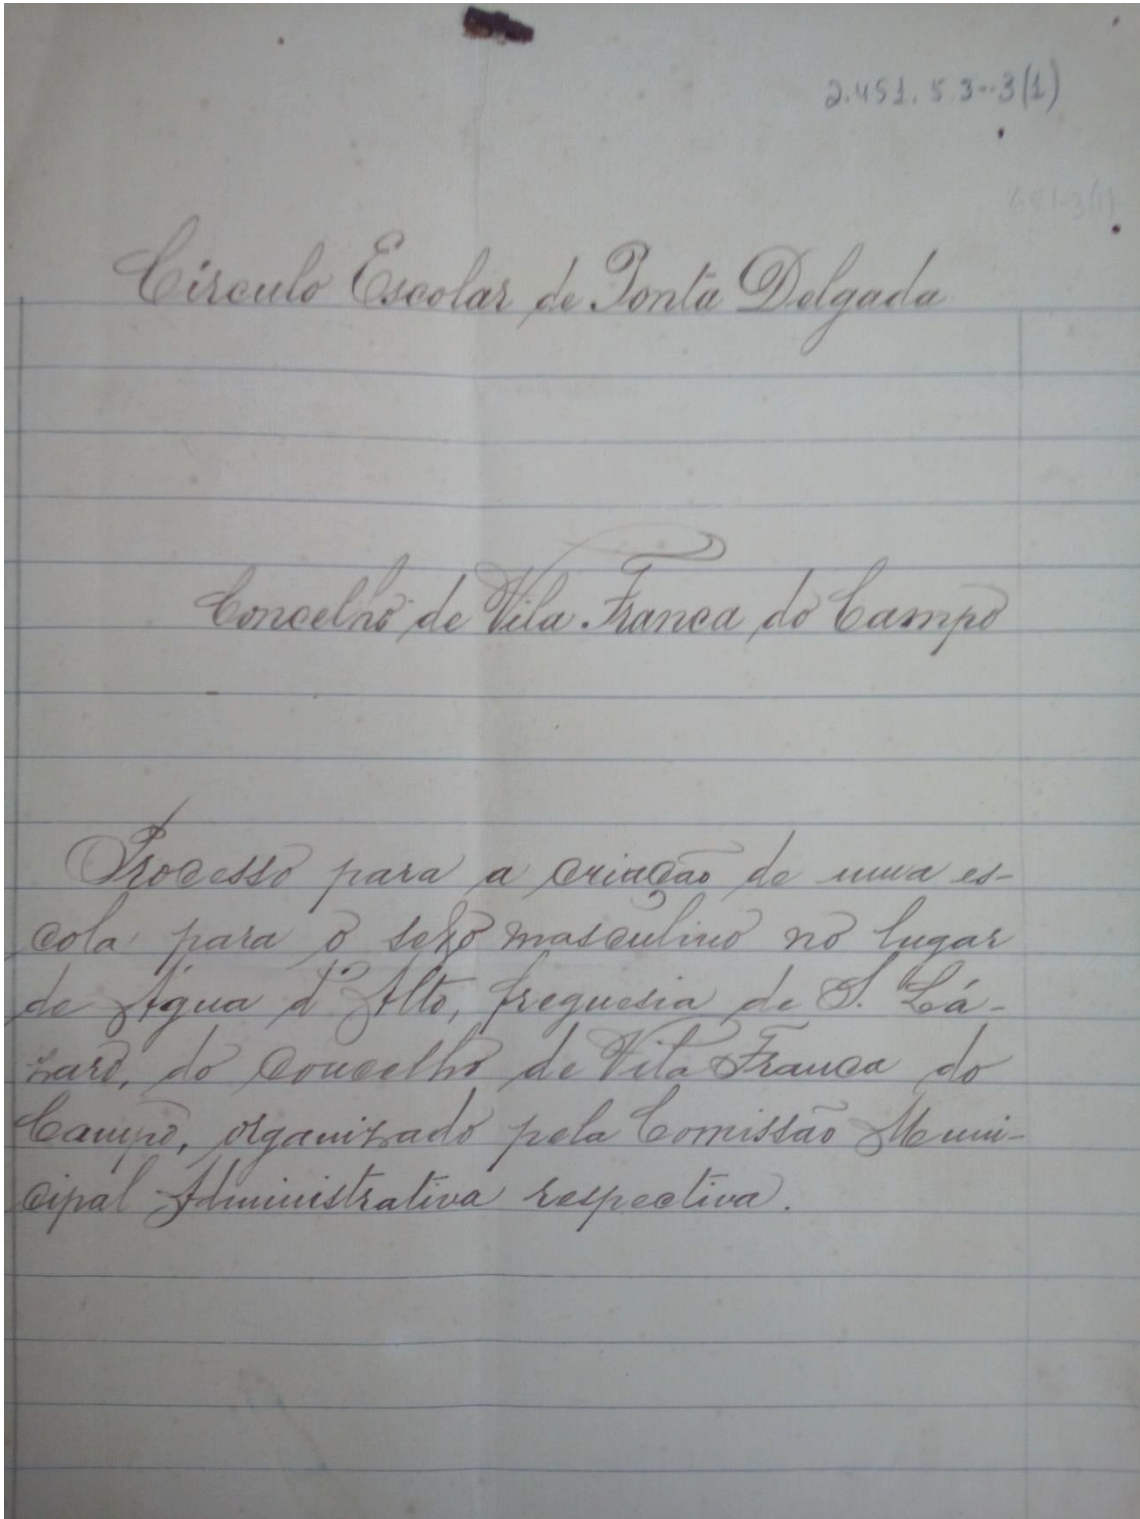 2.451.53--3(1)
Círculo Escolar de Ponta Delgada
Concelho de Vila Franca do Campo
Processo para a criação de uma es-
cola para o sexo masculino no lugar
de Água d'Alto, freguesia de S. Lá-
zaro, do concelho de Vila Franca do
Campo, organizado pela Comissão Muni-
cipal Administrativa respectiva.